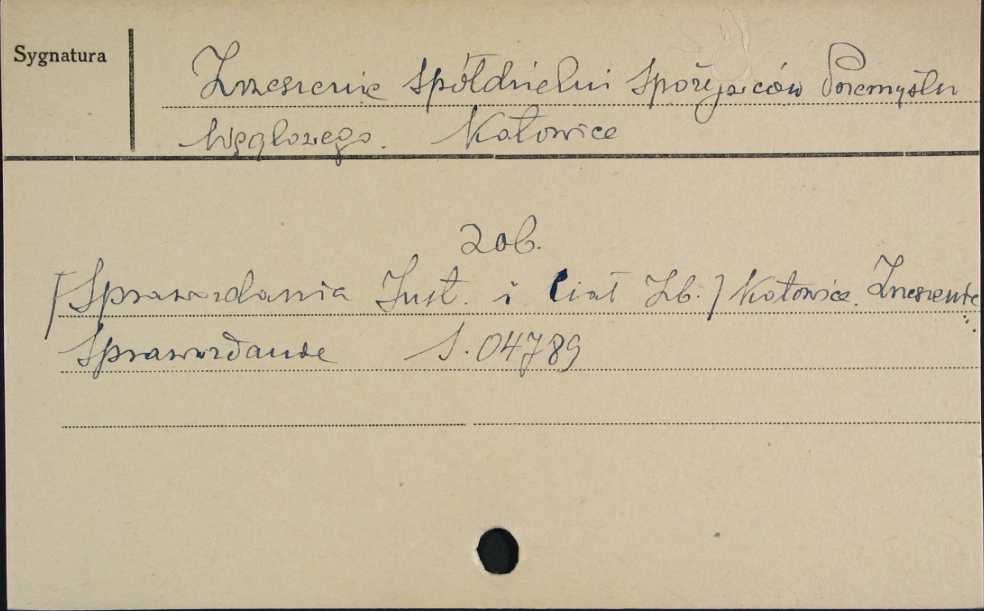 Sygnatura
Zrzeszenie Spółdzielni Spożywców Przemysłu
Węglowego. Katowice
zob.
[Sprawozdania Inst. i Ciał Zb.] Katowice. Zrzeszenie...
Sprawozdanie S. 04789